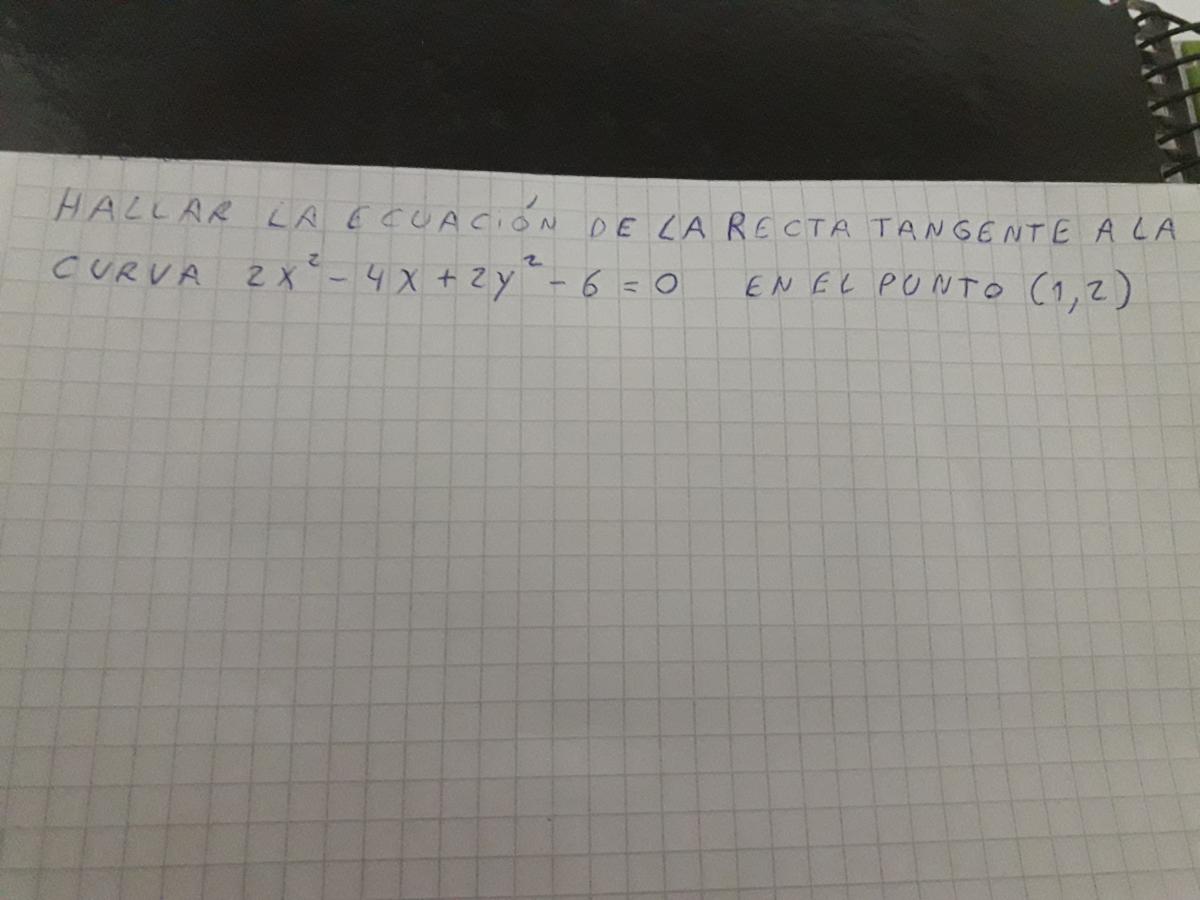 HALLAR LA ECUACIÓN DE LA RECTA TANGENTE A LA
CURVA 2x² - 4x + 2y² - 6 = 0 EN EL PUNTO (1,2)